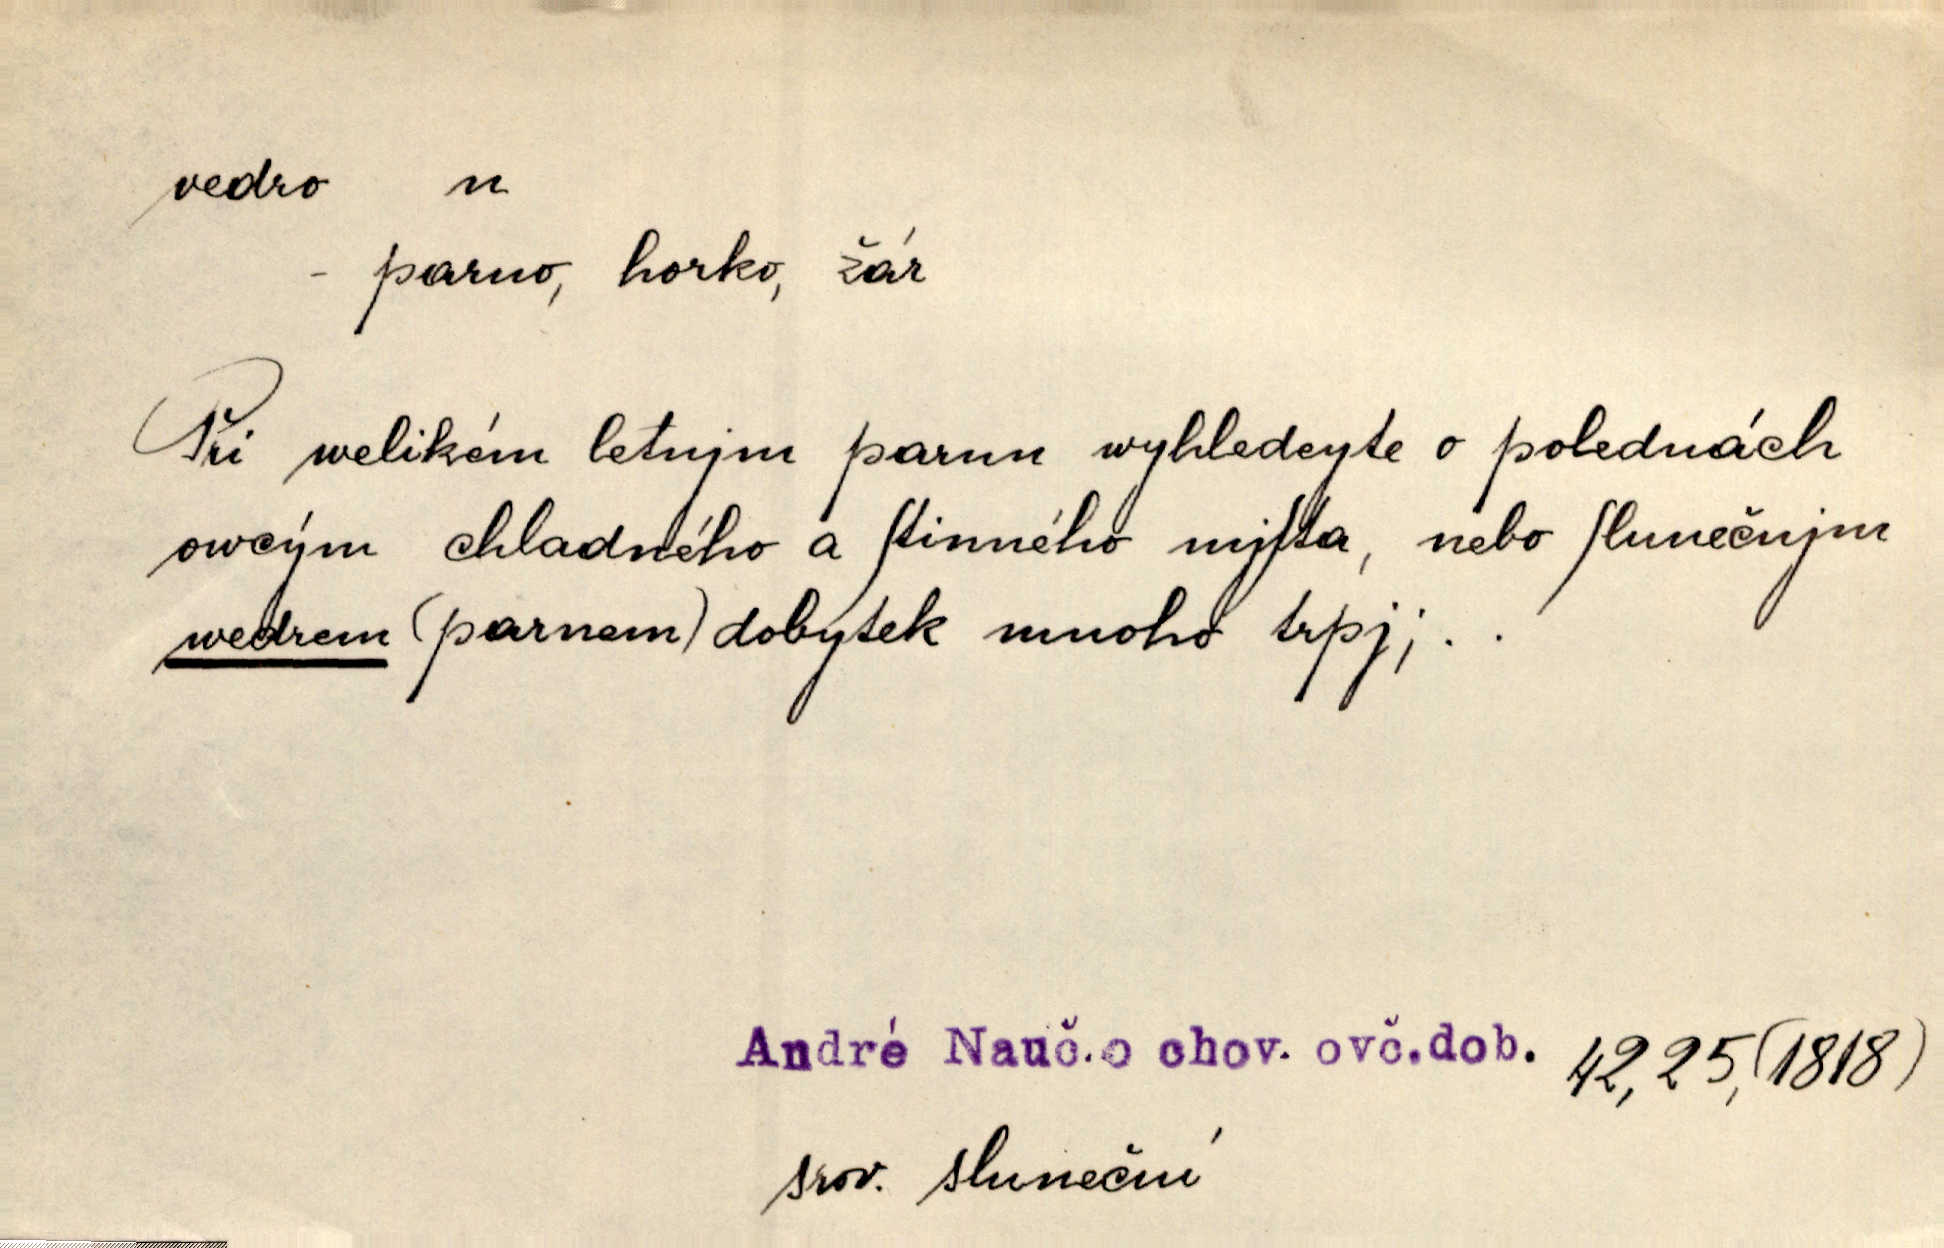 vedro n
- parno, horko, žár
Při welikém letnjm parnu wyhledeyte o polednách
owcým chladného a ſtinného mjſta, nebo ſlunečnjm
wedrem (parnem) dobytek mnoho trpj; . .
André Nauč. o chov. ovč. dob. 42, 25, (1818)
srov. sluneční